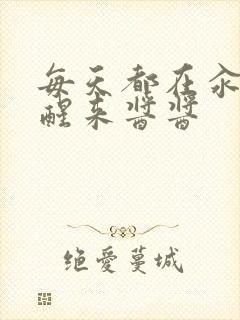 每天都在汆
醒来酱酱
绝爱蔓城